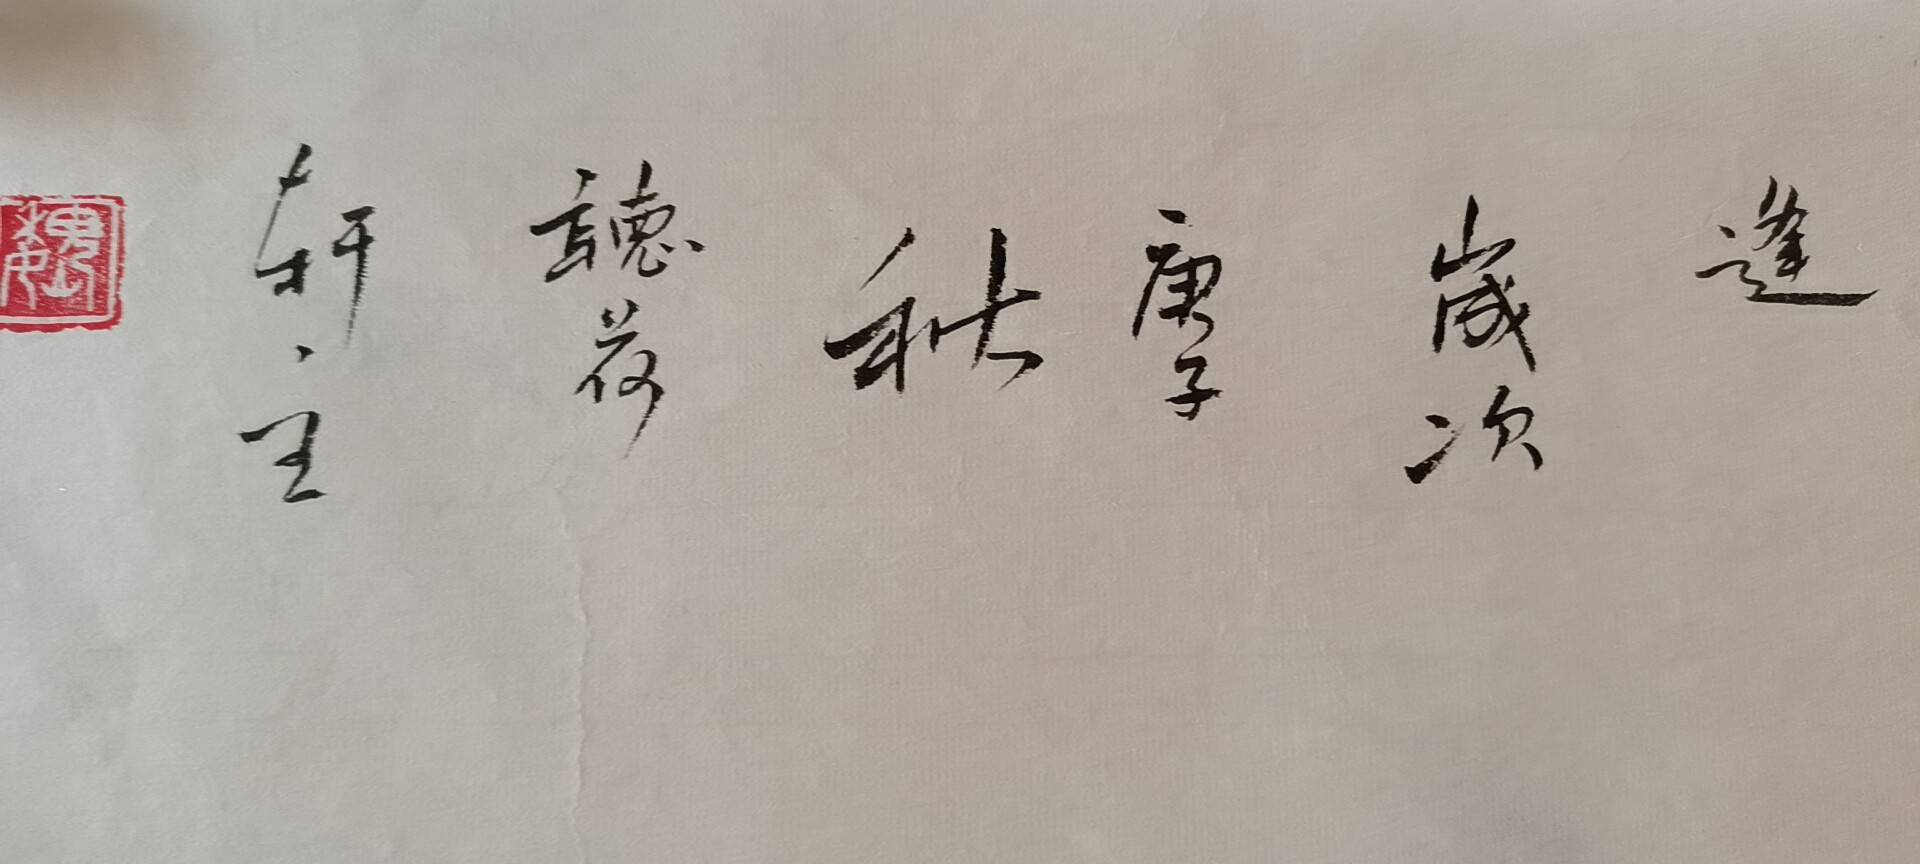 逢
歲次
庚子
秋
聽荷
軒主
魏